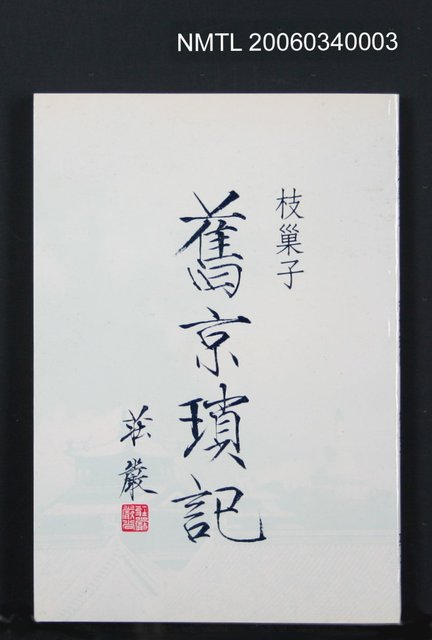 NMTL 20060340003
枝巢子
舊京瑣記
莊嚴